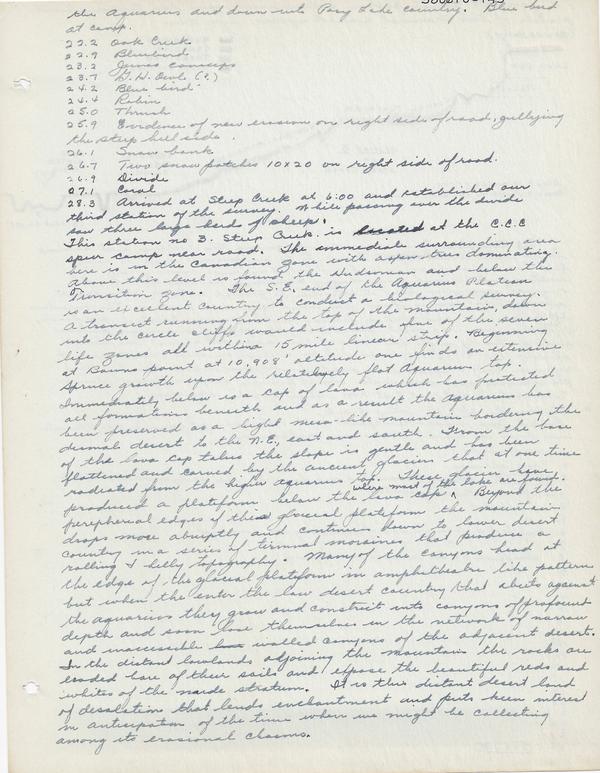 the Aquarius and down into Posy Lake country. Blue bird
at camp.
22.2 Oak Creek
22.9 Bluebird
23.2 Junco caniceps
23.7 G. H. Owls (?)
24.2 Blue bird
24.4 Robin
25.0 Thrush
25.9 Evidence of new erosion on right side of road, gullying
the steep hill side.
26.1 Snow bank
26.7 Two snow patches 10x20 on right side of road.
26.9 Divide
27.1 Coral
28.3 Arrived at Steep Creek at 6:00 and established our
third station of the survey. While passing over the divide
saw three large herd of sheep.
This station no 3. Steep Creek is located at the C.C.C
spur camp near road. The immediate surrounding area
here is in the Canadian zone with aspen trees dominating.
Above this level is found the Hudsonian and below the
Transition zone. The S.E. end of the Aquarius Plateau
is an excellent country to conduct a biological survey.
A transect running from the top of the mountain, down
into the circle cliffs would include five of the seven
life zones all within a 15 mile linear strip. Beginning
at Bowns point at 10,908' altitude one finds an extensive
spruce growth upon the relatively flat Aquarius top.
Immediately below is a cap of lava which has protected
all formations beneath and as a result the Aquarius has
been preserved as a hight mesa-like mountain bordering the
desmal desert to the N.E., east and south. From the base
of the lava cap talus the slope is gentle and has been
flattened and carved by the ancient glacier that at one time
radiated from the higher aquarius top. These glacier have
produced a plateform below the lava cap where most of the lake are found. Beyond the
peripheral edges of this glacial plateform the mountain
drops more abruptly and continues down to lower desert
country in a series of terminal moraines that produce a
rolling & hilly topography. Many of the canyons head at
the edge of the glacial plateform in amphitheatre like pattern
but when the enter the low desert country that abuts against
the aquarius they grow and constrict into canyons of profound
depth and soon lose themselves in the network of narrow
and inaccessible walled canyons of the adjacent desert.
In the distant lowlands adjoining the mountain the rocks are
eroded bare of their soils and expose the beautiful reds and
whites of the nude stratum. It is this distant desert land
of desolation that lends enchantment and puts keen interest
in anticipation of the time when we might be collecting
among its erosional chasms.